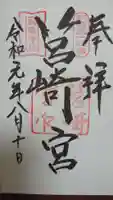 奉拝
筥崎宮
令和元年八月十日